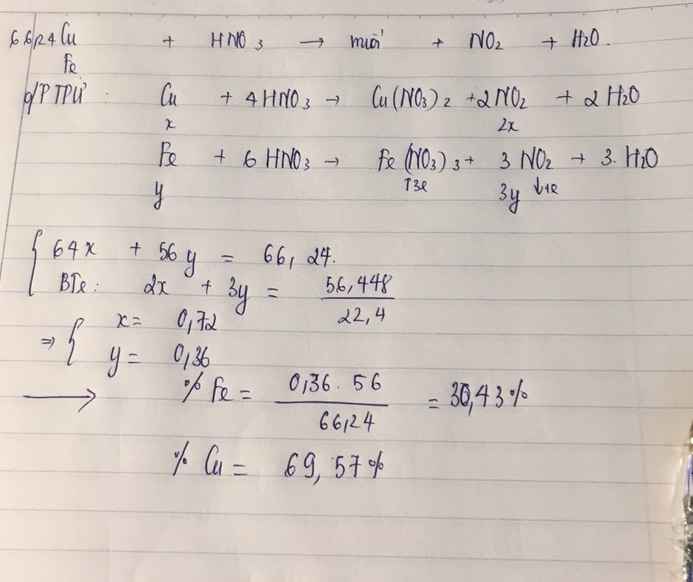 66,24 Cu + HNO3 → muối + NO2 + H2O.
Fe
PTPU: Cu + 4HNO3 → Cu(NO3)2 + 2NO2 + 2H2O
x 2x
Fe + 6HNO3 → Fe(NO3)3 + 3NO2 + 3.H2O
↑3e ↓1e
y 3y
{ 64x + 56y = 66,24.
BTe: 2x + 3y = 56,448 / 22,4
⇒ { x = 0,72
y = 0,36
→ % Fe = 0,36.56 / 66,24 = 30,43%
% Cu = 69,57%